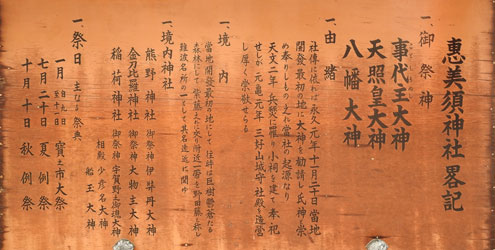 恵美須神社畧記
一、御祭神
事代主大神
天照皇大神
八幡大神
一、由緒
社傳に依れば永久元年十月二十日當地
開發最初の地に大神を勧請し氏神と崇
め奉りしものこそ當社の起源なり
天文二年 兵燹に罹り小祠を建て奉祀
せしが 元亀元年 三好山城守社殿を造営
し厚く崇敬せらる
一、境内
當地開發最初の地にして往時は巨樹鬱蒼たる
森林にして紫藤また
一帯を野田藤と称し
難波名所の一として其名遠近に聞ゆ
一、境内神社
熊野神社 御祭神 伊弉丹大神
金刀比羅神社 御祭神 大物主大神
稲荷神社 御祭神 宇賀野志御魂大神
相殿 少彦名大神
船玉大神
一、祭日 主なる祭典
一月 自九日 至十一日 寳之市大祭
七月二十日 夏例祭
十月十日 秋例祭